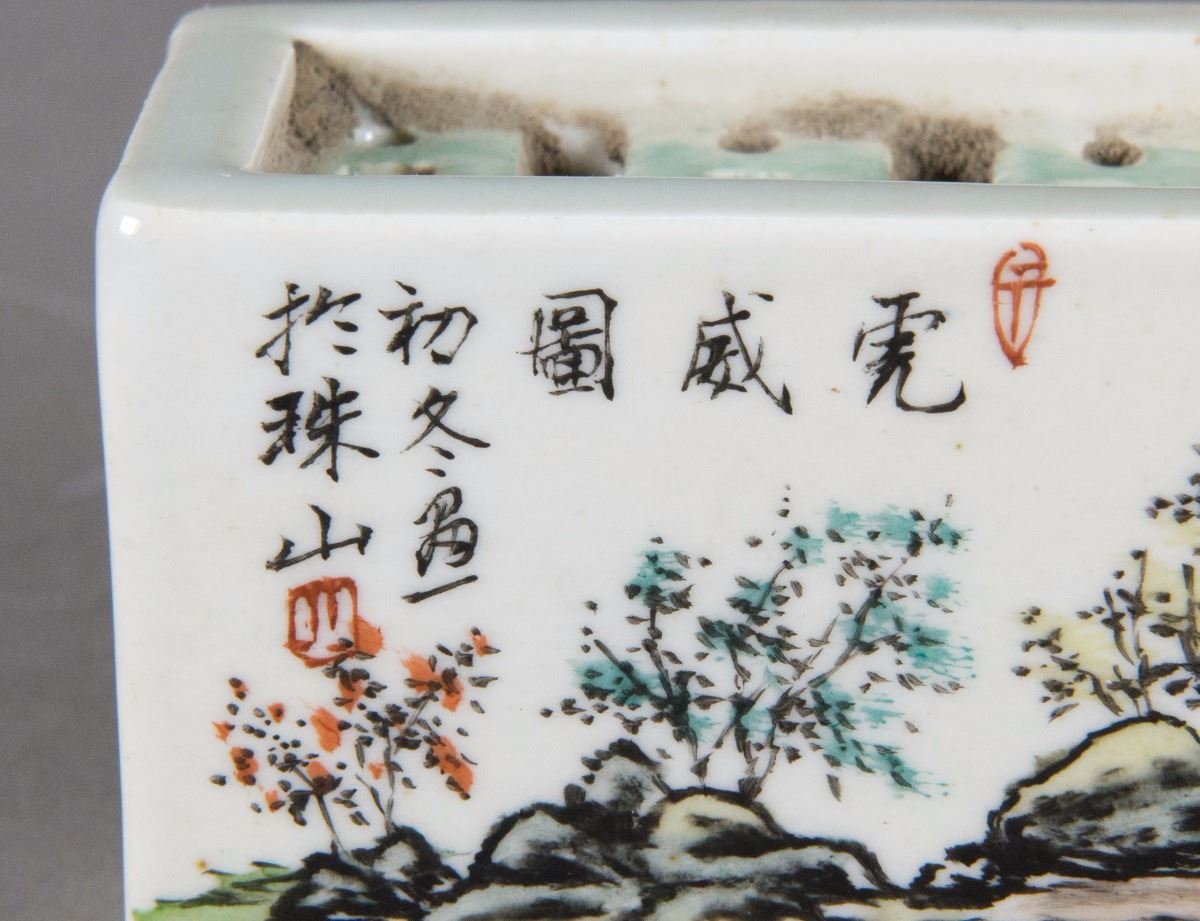 虎威圖
初冬畫
於珠山